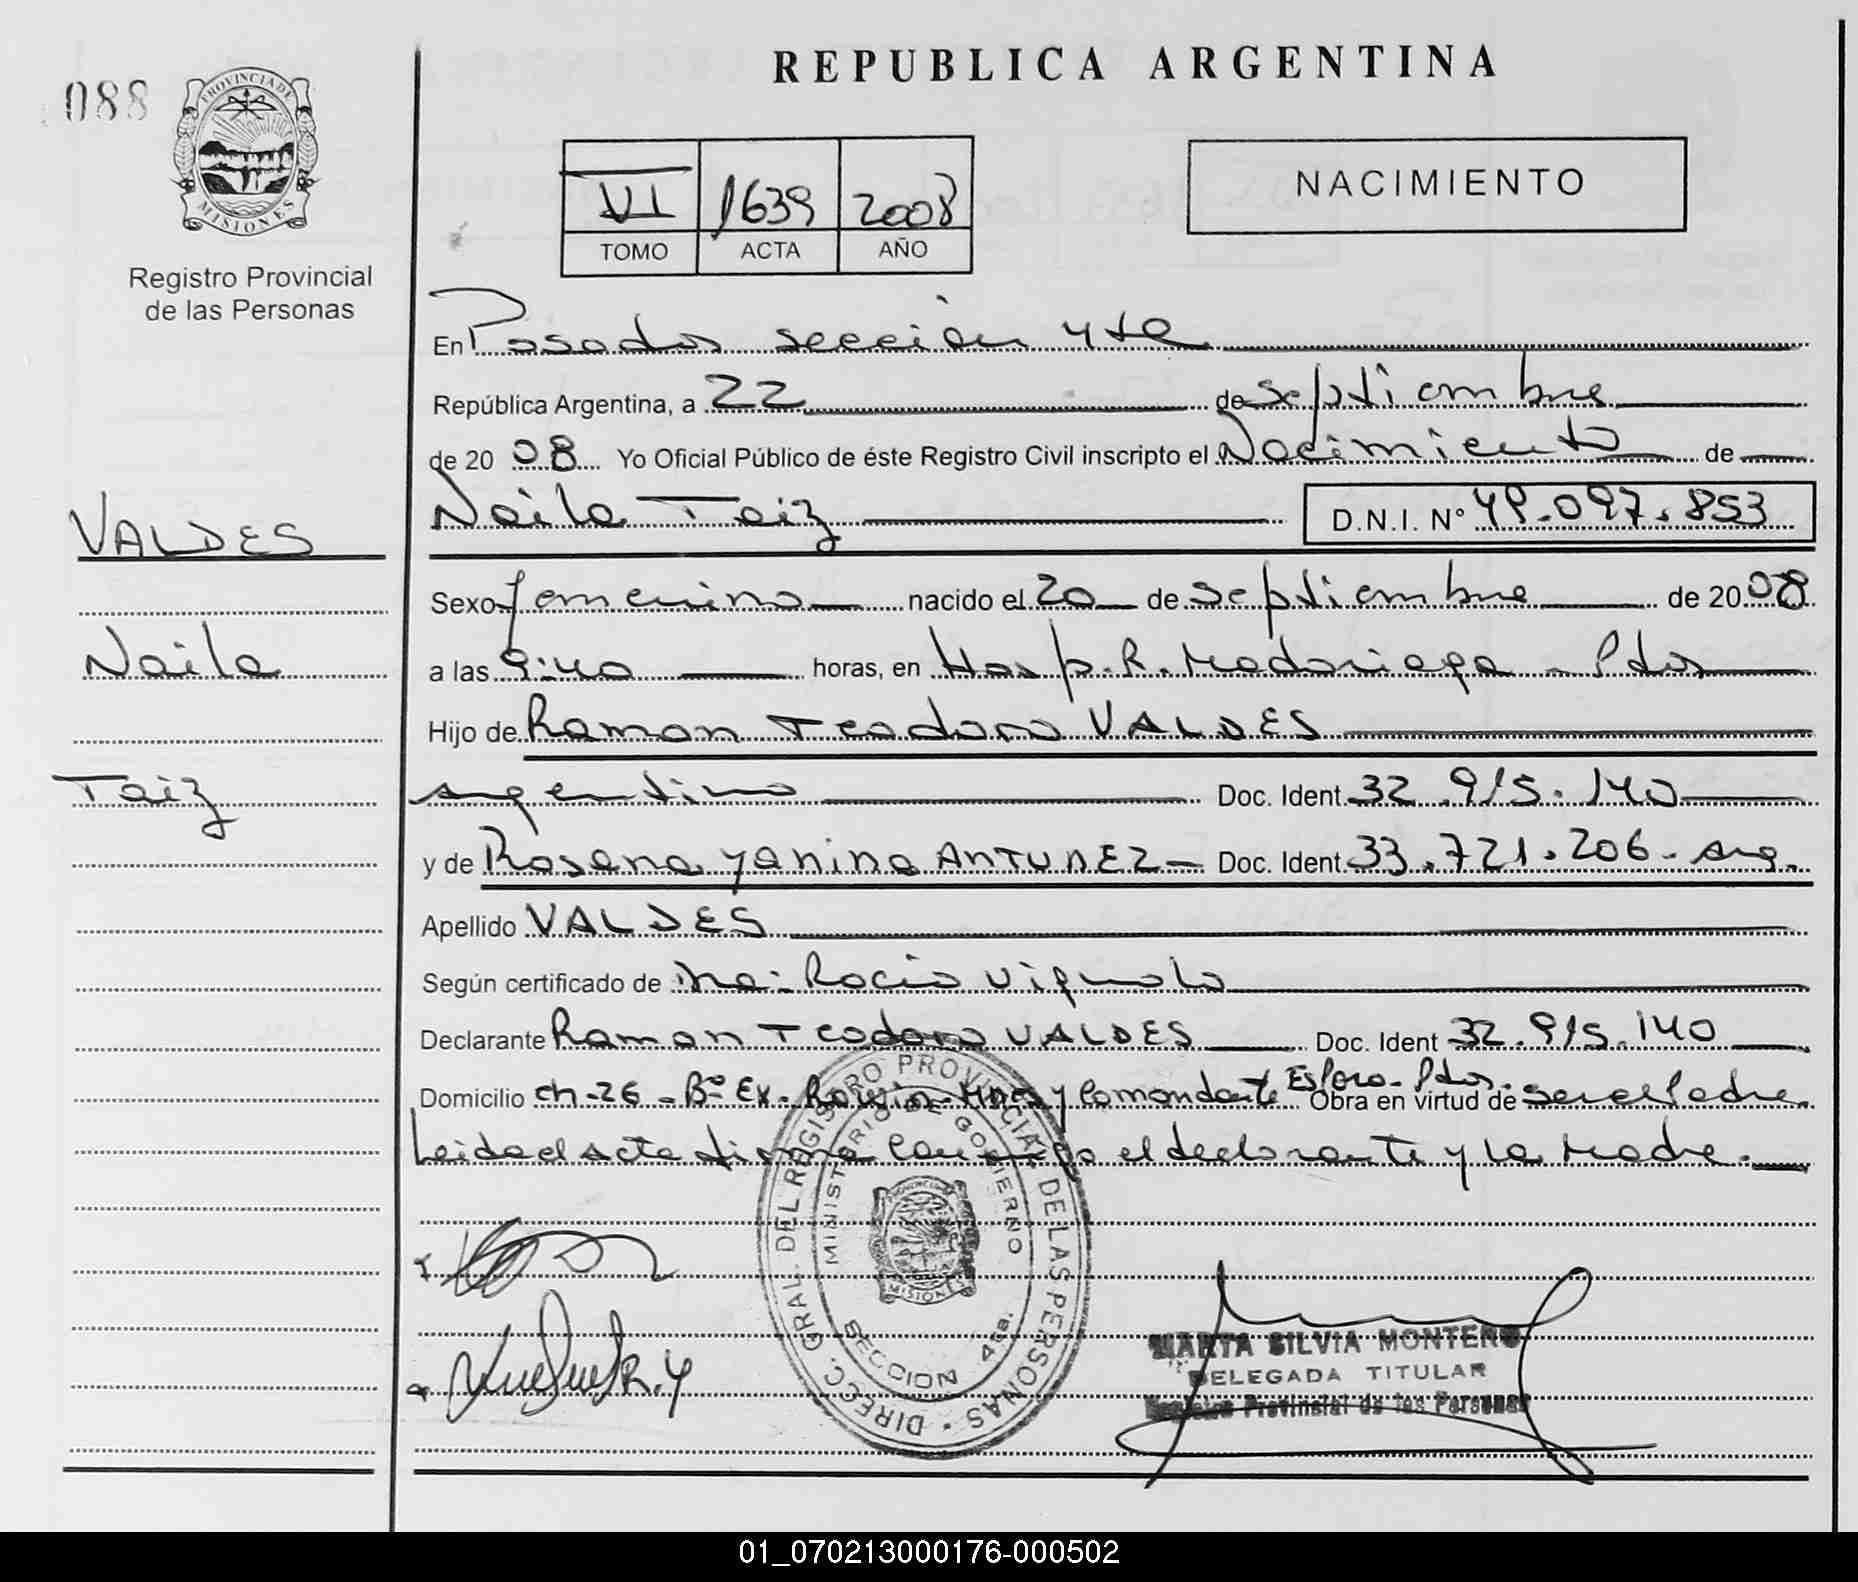 088
PROVINCIA DE
MISIONES
Registro Provincial
de las Personas
REPUBLICA ARGENTINA
VI 1639 2008
TOMO ACTA AÑO
NACIMIENTO
En Posadas sección 4ta
República Argentina, a 22 de septiembre
de 20 08 Yo Oficial Público de éste Registro Civil inscripto el Nacimiento de
Naila Taiz D.N.I. N° 49.097.853
VALDES
Naila
Taiz
Sexo femenino nacido el 20 de septiembre de 20 08
a las 9:40 horas, en Hosp. R. Madariaga - Pdas
Hijo de Ramon Teodoro VALDES
argentino Doc. Ident. 32.915.140
y de Rosana Yanina ANTUNEZ - Doc. Ident. 33.721.206 - arg.
Apellido VALDES
Según certificado de Rocio Vignolo
Declarante Ramon Teodoro VALDES Doc. Ident 32.915.140
Domicilio ch-26 - B° Ex- y Comandante Espora - Pdas. Obra en virtud de ser el Padre.
Leida el acta firma conmigo el declarante y la Madre.
DIRECC. GRAL. DEL REGISTRO PROVINCIAL DE LAS PERSONAS
MINISTERIO DE GOBIERNO
MISIONES
SECCION 4ta.
MARTA SILVIA MONTERO
DELEGADA TITULAR
Registro Provincial de las Personas
01_070213000176-000502